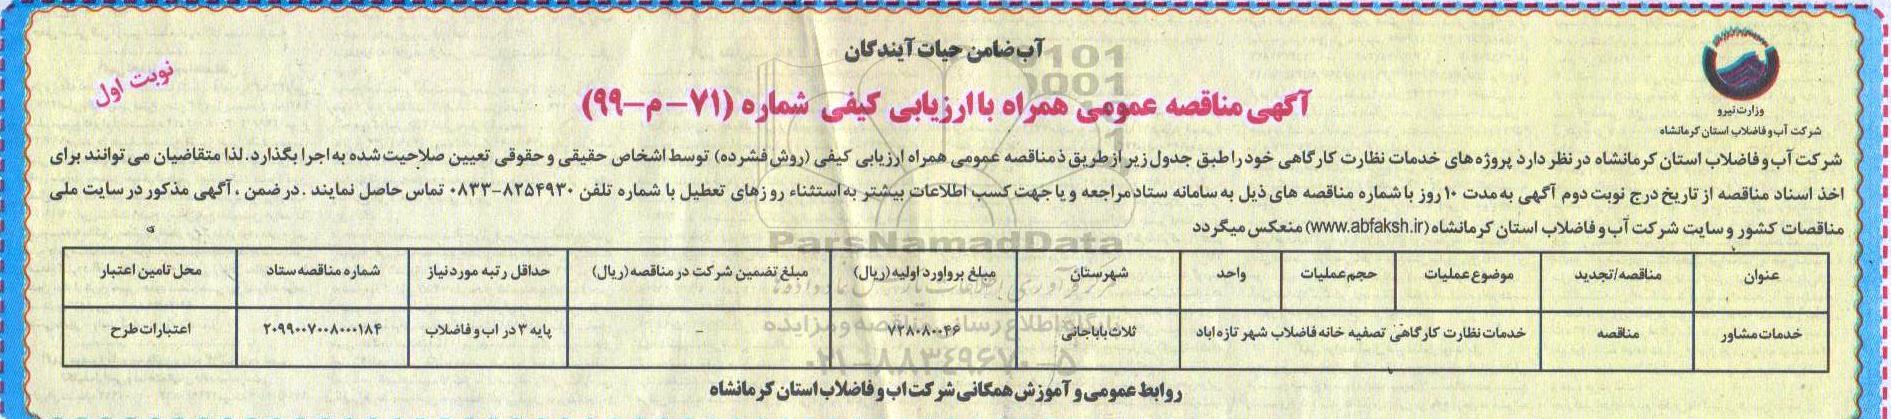 آب ضامن حیات آیندگان
نوبت اول
آگهی مناقصه عمومی همراه با ارزیابی کیفی شماره (۷۱-م-۹۹)
وزارت نیرو
شرکت آب و فاضلاب استان کرمانشاه
شرکت آب و فاضلاب استان کرمانشاه در نظر دارد پروژه های خدمات نظارت کارگاهی خود را طبق جدول زیر از طریق ذمناقصه عمومی همراه ارزیابی کیفی (روش فشرده) توسط اشخاص حقیقی و حقوقی تعیین صلاحیت شده به اجرا بگذارد. لذا متقاضیان می توانند برای
اخذ اسناد مناقصه از تاریخ درج نوبت دوم آگهی به مدت ۱۰ روز با شماره مناقصه های ذیل به سامانه ستاد مراجعه و یا جهت کسب اطلاعات بیشتر به استثناء روزهای تعطیل با شماره تلفن ۸۲۵۴۹۳۰-۰۸۳۳ تماس حاصل نمایند. در ضمن ، آگهی مذکور در سایت ملی
مناقصات کشور و سایت شرکت آب و فاضلاب استان کرمانشاه (www.abfaksh.ir) منعکس میگردد
عنوان | مناقصه/تجدید | موضوع عملیات | حجم عملیات | واحد | شهرستان | مبلغ برواورد اولیه (ریال) | مبلغ تضمین شرکت در مناقصه (ریال) | حداقل رتبه مورد نیاز | شماره مناقصه ستاد | محل تامین اعتبار
خدمات مشاور | مناقصه | خدمات نظارت کارگاهی تصفیه خانه فاضلاب شهر تازه اباد | ثلاث باباجانی | ۷۲۸۰۸۰۰۴۶ | - | پایه ۳ در اب و فاضلاب | ۲۰۹۹۰۰۷۰۰۸۰۰۰۱۸۴ | اعتبارات طرح
روابط عمومی و آموزش همگانی شرکت اب و فاضلاب استان کرمانشاه
ParsNamadData
پایگاه اطلاع رسانی مناقصه و مزایده
۰۲۱-۸۸۳۴۹۶۷۰-۵